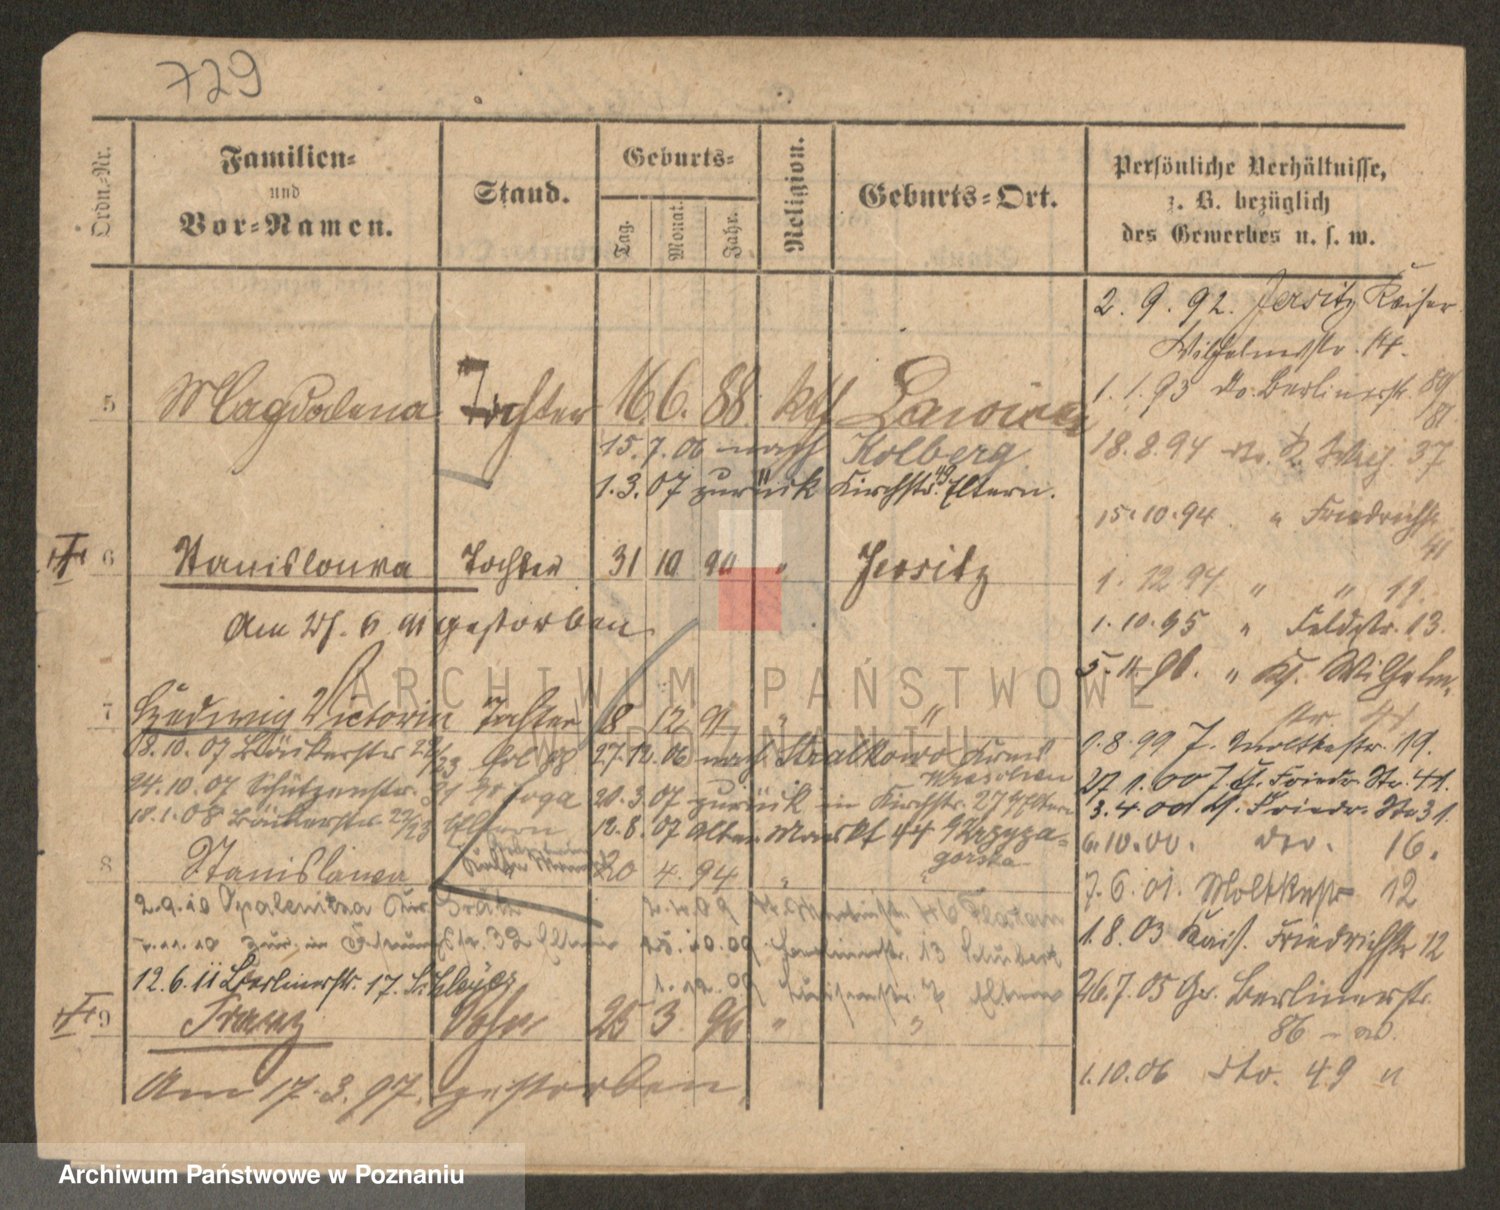 729
Ordn.-Nr.
Familien-
und
Vor-Namen.
Stand.
Geburts-
Tag.
Monat.
Jahr.
Religion.
Geburts-Ort.
Persönliche Verhältnisse,
z. B. bezüglich
des Gewerbes u. s. w.
2. 9. 92. Jersitz Kaiser
Wilhelmstr. 14.
1. 1. 93 do. Berlinerstr. 80/81
18. 8. 94 37
15. 10. 94 " Friedrichstr
41
1. 12 94 " " 19.
1. 10. 95 " Feldstr. 13.
5. 11. 96. " Wilhelm
str.
1. 8. 99 J. Moltkestr. 19.
27 1. 00 J. Friedr. Str. 41.
3. 4. 00 Friedr. Str 31.
6. 10. 00. dto. 16.
7. 6. 01. Moltkestr 12
1. 8. 03 Kais. Friedrichstr 12
26. 7. 05 Gr. Berlinerstr.
86
1. 10. 06 dto. 49
5 Magdalena Tochter 16 6. 88 kth
15. 7. 06 nach Kolberg
1. 3. 07 zurück Kirchstr. 49 Eltern.
6 Stanislawa Tochter 31 10 90 " Jersitz
Am 6 91 gestorben
7 Hedwig Victoria Tochter 18 12 91 " "
08. 10. 07 Bäckerstr 22/23 27. 12. 06 nach Stralkowo Kreis
Wreschen
24. 10. 07 Schützenstr. 20. 3. 07 zurück in Kirchstr. 27 Eltern
18. 1. 08 Bäckerstr 22/23 Eltern 12. 8. 07 Alter Markt 44 Przyza-
gorska
8 Stanislawa 20 4. 94 " "
2. 9. 10 Opalenitza Kr. Grätz
Str. 32 Eltern 10. 09 13 Schubert
12. 6. 11 Berlinerstr. 17.
1. 12. 09 Eltern
9 Franz Sohn 25 3. 96 " "
Am 17. 3. 97. gestorben
ARCHIWUM PAŃSTWOWE
W POZNANIU
Archiwum Państwowe w Poznaniu